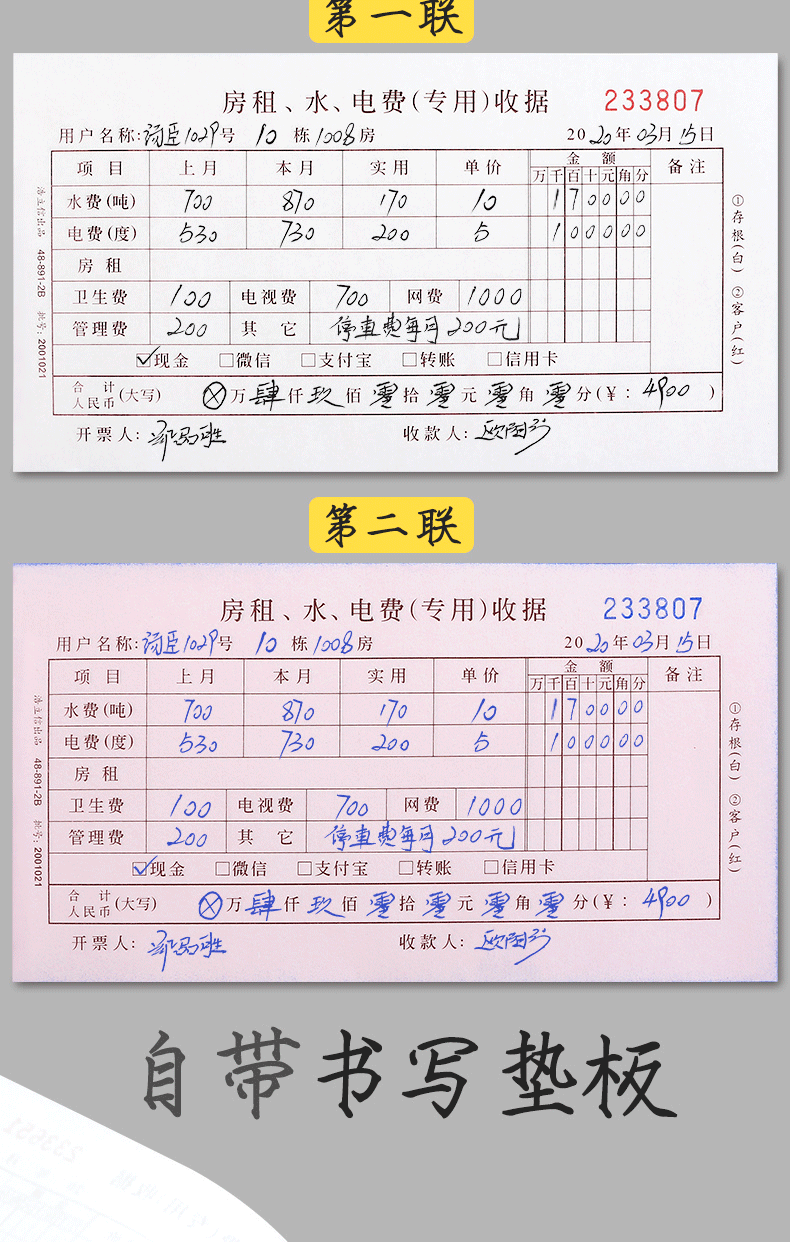 第一联
房租、水、电费(专用)收据 233807
用户名称: 1029号 10 栋 1008房 2020年03月15日
项目 上月 本月 实用 单价 金额 备注
万千百十元角分
水费(吨) 700 870 170 10 170000
电费(度) 530 730 200 5 100000
房租
卫生费 100 电视费 700 网费 1000
管理费 200 其它 停車费每月200元
现金 微信 支付宝 转账 信用卡
合计人民币(大写) ⊗万肆仟玖佰零拾零元零角零分(¥: 4900 )
开票人: 收款人: 欧阳
浩立信出品 48-891-2B 批号: 2001021
①存根(白) ②客户(红)
第二联
房租、水、电费(专用)收据 233807
用户名称: 1029号 10 栋 1008房 2020年03月15日
项目 上月 本月 实用 单价 金额 备注
万千百十元角分
水费(吨) 700 870 170 10 170000
电费(度) 530 730 200 5 100000
房租
卫生费 100 电视费 700 网费 1000
管理费 200 其它 停車费每月200元
现金 微信 支付宝 转账 信用卡
合计人民币(大写) ⊗万肆仟玖佰零拾零元零角零分(¥: 4900 )
开票人: 收款人: 欧阳
浩立信出品 48-891-2B 批号: 2001021
①存根(白) ②客户(红)
自带书写垫板